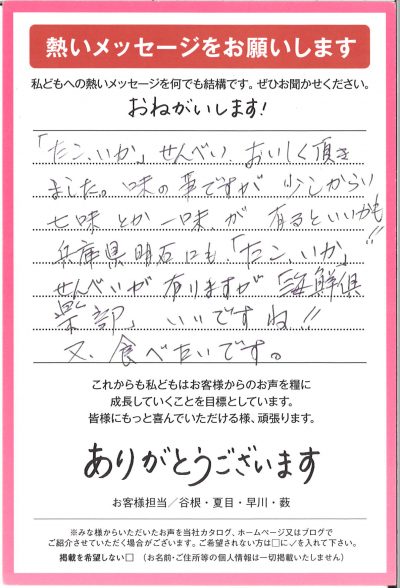 熱いメッセージをお願いします
私どもへの熱いメッセージを何でも結構です。ぜひお聞かせください。
おねがいします!
「たこ、いか」せんべい、おいしく頂き
ました。味の事ですが 少しからい
七味とか一味、が 有るといいかも!!
兵庫県明石にも、「たこ、いか」
せんべいが有りますが「海鮮倶
楽部」 いいですね!!
又、食べたいです。
これからも私どもはお客様からのお声を糧に
成長していくことを目標としています。
皆様にもっと喜んでいただける様、頑張ります。
ありがとうございます
お客様担当/谷根・夏目・早川・薮
※みな様からいただいたお声を当社カタログ、ホームページ又はブログで
ご紹介させていただく場合がございます。ご希望されない方は□に✓を入れて下さい。
掲載を希望しない□ (お名前・ご住所等の個人情報は一切掲載いたしません)